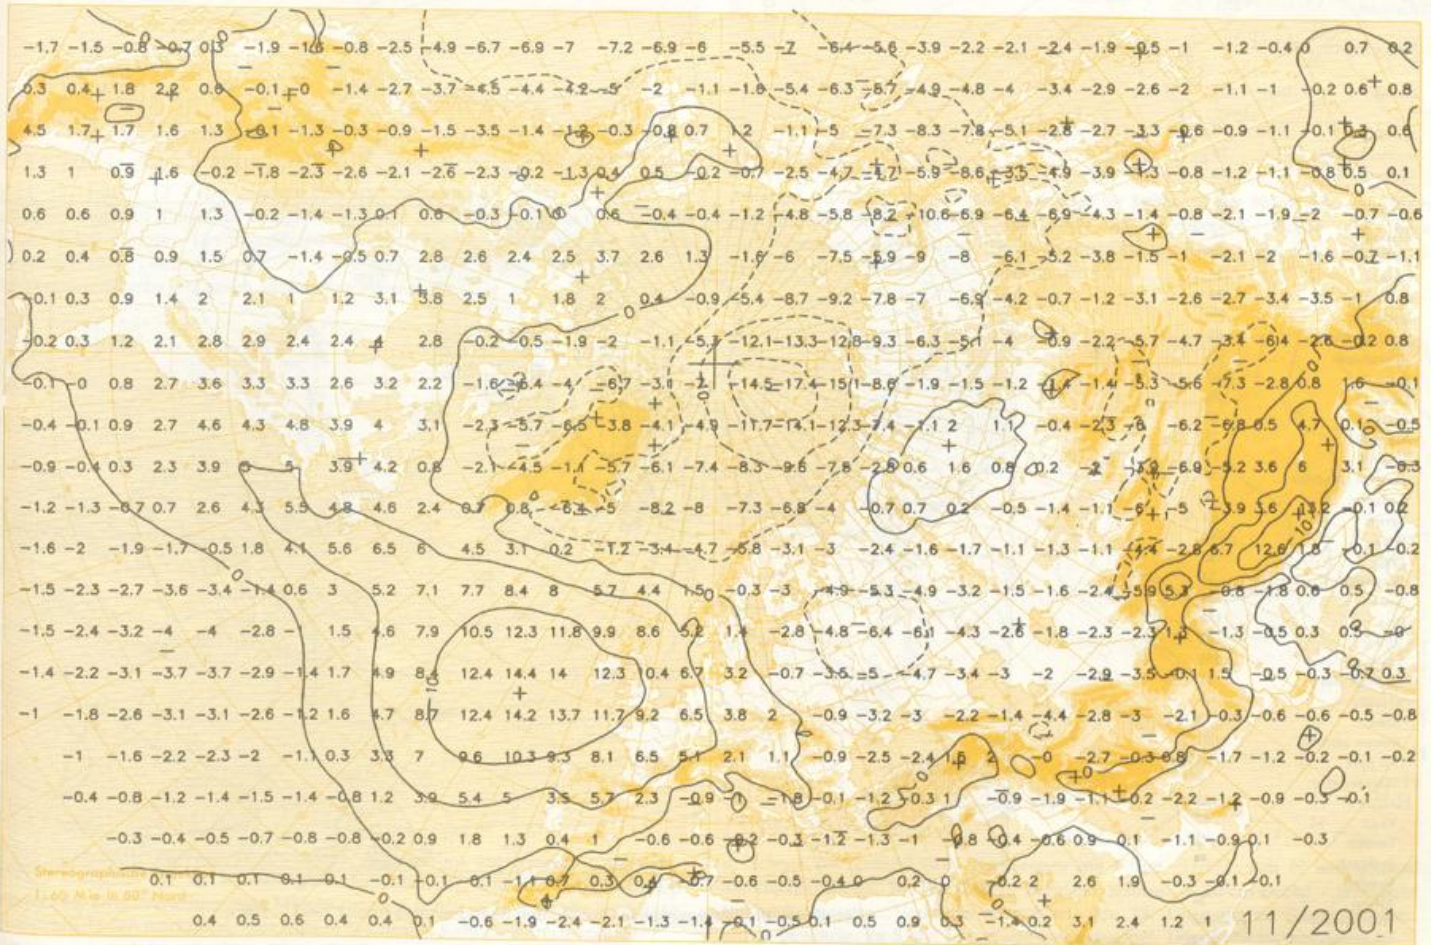 -1.7 -1.5 -0.8 -0.7 0.3 -1.9 -1.6 -0.8 -2.5 -4.9 -6.7 -6.9 -7 -7.2 -6.9 -6 -5.5 -7 -6.4 -5.6 -3.9 -2.2 -2.1 -2.4 -1.9 -0.5 -1 -1.2 -0.4 0 0.7 0.2
0.3 0.4 1.8 2.2 0.6 -0.1 -0 -1.4 -2.7 -3.7 -4.5 -4.4 -4.2 -5 -2 -1.1 -1.6 -5.4 -6.3 -5.7 -4.9 -4.8 -4 -3.4 -2.9 -2.6 -2 -1.1 -1 -0.2 0.6 0.8
4.5 1.7 1.7 1.6 1.3 -0.1 -1.3 -0.3 -0.9 -1.5 -3.5 -1.4 -1.2 -0.3 -0.8 0.7 1.2 -1.1 -5 -7.3 -8.3 -7.8 -5.1 -2.8 -2.7 -3.3 -0.6 -0.9 -1.1 -0.1 0.3 0.6
1.3 1 0.9 1.6 -0.2 -1.8 -2.3 -2.6 -2.1 -2.6 -2.3 -0.2 -1.3 0.4 0.5 -0.2 -0.7 -2.5 -4.7 -4.7 -5.9 -8.6 -3.5 -4.9 -3.9 -1.3 -0.8 -1.2 -1.1 -0.8 0.5 0.1
0.6 0.6 0.9 1 1.3 -0.2 -1.4 -1.3 0.1 0.6 -0.3 -0.1 0 0.6 -0.4 -0.4 -1.2 -4.8 -5.8 -8.2 -10.6 -6.9 -6.4 -6.9 -4.3 -1.4 -0.8 -2.1 -1.9 -2 -0.7 -0.6
0.2 0.4 0.8 0.9 1.5 0.7 -1.4 -0.5 0.7 2.8 2.6 2.4 2.5 3.7 2.6 1.3 -1.6 -6 -7.5 -5.9 -9 -8 -6.1 -5.2 -3.8 -1.5 -1 -2.1 -2 -1.6 -0.7 -1.1
-0.1 0.3 0.9 1.4 2 2.1 1 1.2 3.1 3.8 2.5 1 1.8 2 0.4 -0.9 -5.4 -8.7 -9.2 -7.8 -7 -6.9 -4.2 -0.7 -1.2 -3.1 -2.6 -2.7 -3.4 -3.5 -1 0.8
-0.2 0.3 1.2 2.1 2.8 2.9 2.4 2.4 4 2.8 -0.2 -0.5 -1.9 -2 -1.1 -12.1 -13.3 -12.8 -9.3 -6.3 -5.1 -4 -0.9 -2.2 -5.7 -4.7 -3.4 -6.4 -2.6 -0.2 0.8
-0.1 -0 0.8 2.7 3.6 3.3 3.3 2.6 3.2 2.2 -1.6 -6.4 -4 -6.7 -3.1 -7 -14.5 -17.4 -15.1 -8.6 -1.9 -1.5 -1.2 -1.4 -1.4 -5.3 -5.6 -7.3 -2.8 0.8 1.6 -0.1
-0.4 -0.1 0.9 2.7 4.6 4.3 4.8 3.9 4 3.1 -2.3 -5.7 -6.5 -3.8 -4.1 -4.9 -11.7 -14.1 -12.3 -7.4 -1.1 2 1.1 -0.4 -2.3 -6 -6.2 -6.8 0.5 4.7 0.1 -0.5
-0.9 -0.4 0.3 2.3 3.9 5 5 3.9 4.2 0.8 -2.1 -4.5 -1.1 -5.7 -6.1 -7.4 -8.3 -9.6 -7.8 -2.8 0.6 1.6 0.8 0.2 -2 -3.9 -6.9 -5.2 3.6 6 3.1 -0.3
-1.2 -1.3 -0.7 0.7 2.6 4.3 5.5 4.8 4.6 2.4 0.7 0.8 -6.4 -5 -8.2 -8 -7.3 -6.8 -4 -0.7 0.7 0.2 -0.5 -1.4 -1.1 -6 -5 -3.9 3.6 13.2 -0.1 0.2
-1.6 -2 -1.9 -1.7 -0.5 1.8 4.1 5.6 6.5 6 4.5 3.1 0.2 -1.2 -3.4 -4.7 -5.8 -3.1 -3 -2.4 -1.6 -1.7 -1.1 -1.3 -1.1 -4.4 -2.8 6.7 12.6 1.8 -0.1 -0.2
-1.5 -2.3 -2.7 -3.6 -3.4 -1.4 0.6 3 5.2 7.1 7.7 8.4 8 5.7 4.4 1.5 -0.3 -3 -4.9 -5.3 -4.9 -3.2 -1.5 -1.6 -2.4 -5.9 5.3 -0.8 -1.8 0.6 0.5 -0.8
-1.5 -2.4 -3.2 -4 -4 -2.8 - 1.5 4.6 7.9 10.5 12.3 11.8 9.9 8.6 5.2 1.4 -2.8 -4.8 -6.4 -6.1 -4.3 -2.6 -1.8 -2.3 -2.3 1.3 -1.3 -0.5 0.3 0.5 -0
-1.4 -2.2 -3.1 -3.7 -3.7 -2.9 -1.4 1.7 4.9 12.4 14.4 14 12.3 0.4 6.7 3.2 -0.7 -3.5 -5 -4.7 -3.4 -3 -2 -2.9 -3.5 -0.1 1.5 -0.5 -0.3 -0.7 0.3
-1 -1.8 -2.6 -3.1 -3.1 -2.6 -1.2 1.6 4.7 8.7 12.4 14.2 13.7 11.7 9.2 6.5 3.8 2 -0.9 -3.2 -3 -2.2 -1.4 -4.4 -2.8 -3 -2.1 -0.3 -0.6 -0.6 -0.5 -0.8
-1 -1.6 -2.2 -2.3 -2 -1.1 0.3 3.3 7 9.6 10.3 9.3 8.1 6.5 5.1 2.1 1.1 -0.9 -2.5 -2.4 1.5 2 -0 -2.7 -0.3 0.8 -1.7 -1.2 -0.2 -0.1 -0.2
-0.4 -0.8 -1.2 -1.4 -1.5 -1.4 -0.8 1.2 3.9 5.4 5 3.5 5.7 2.3 -0.9 -1 -1.8 -0.1 -1.2 -0.3 1 -0.9 -1.9 -1.1 -0.2 -2.2 -1.2 -0.9 -0.3 -0.1
-0.3 -0.4 -0.5 -0.7 -0.8 -0.8 -0.2 0.9 1.8 1.3 0.4 1 -0.6 -0.6 -0.2 -0.3 -1.2 -1.3 -1 -0.8 -0.4 -0.6 0.9 0.1 -1.1 -0.9 0.1 -0.3
Stereographische
0.1 0.1 0.1 0.1 0.1 -0.1 -0.1 0.1 -1.1 0.7 0.3 0.4 -0.7 -0.6 -0.5 -0.4 0 0.2 0 -0.2 2 2.6 1.9 -0.3 -0.1 -0.1
1:60 Mio in 60° Nord
0.4 0.5 0.6 0.4 0.4 0.1 -0.6 -1.9 -2.4 -2.1 -1.3 -1.4 -0.1 -0.5 0.1 0.5 0.9 0.3 -1.4 0.2 3.1 2.4 1.2 1
11/2001